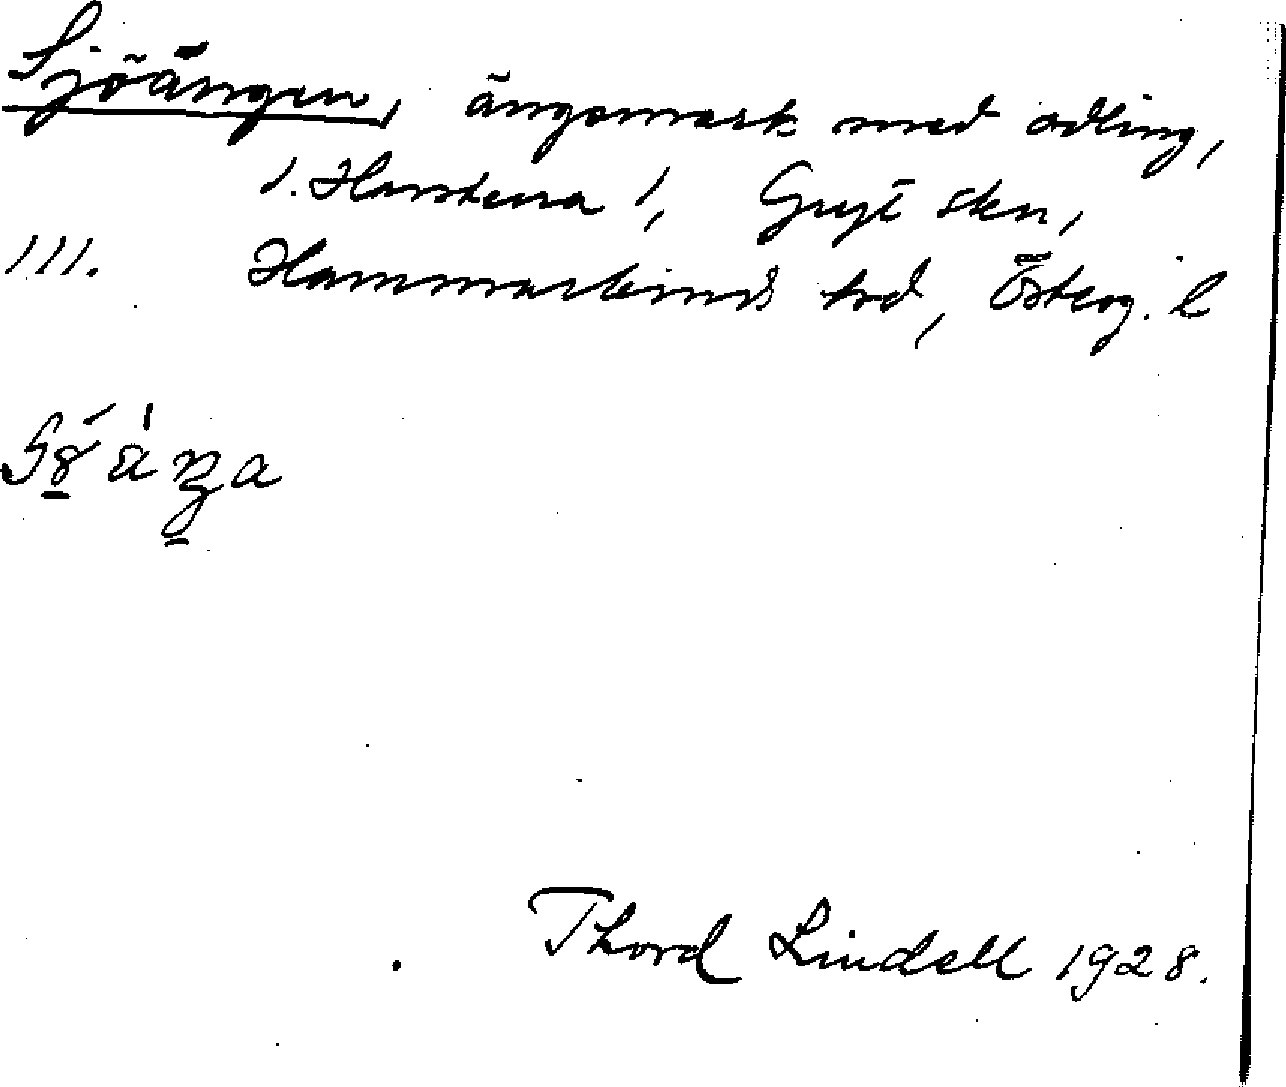 Sjöängen, ängsmark med odling,
1. Harstena 1, Gryt skn,
111. Hammarkinds hd, Österg. l
Thord Lindell 1928.